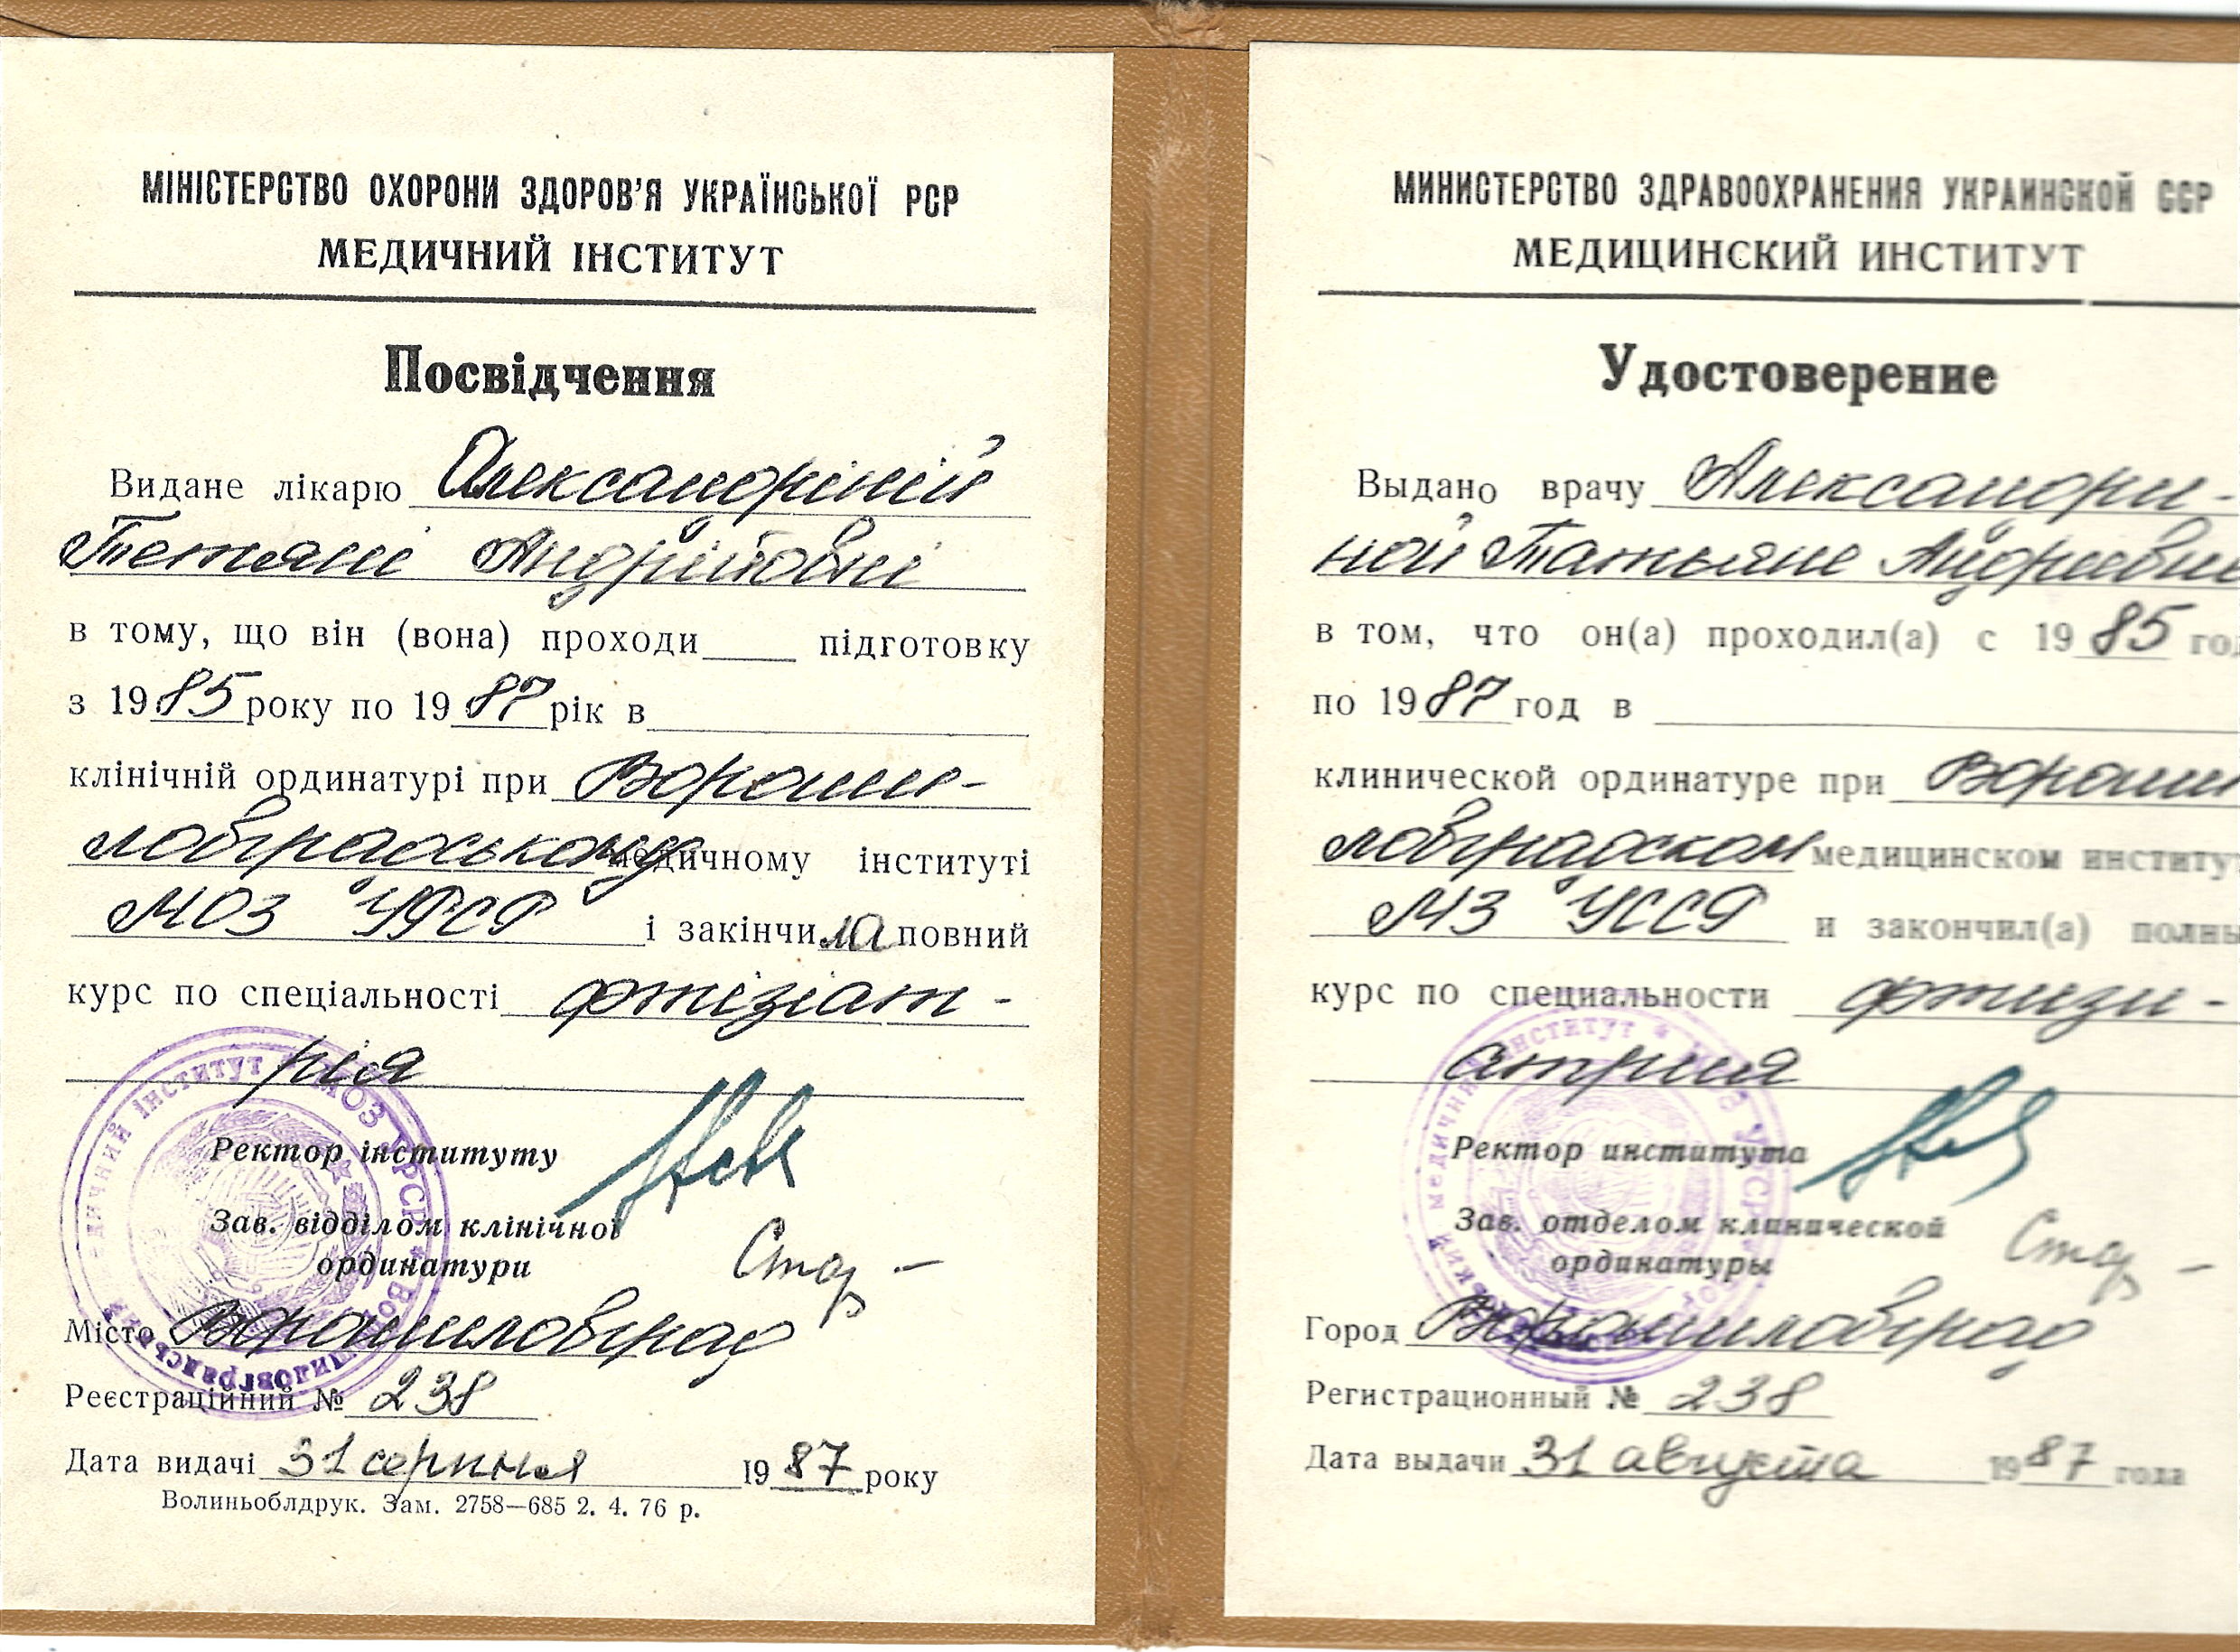 МІНІСТЕРСТВО ОХОРОНИ ЗДОРОВ'Я УКРАЇНСЬКОЇ РСР
МЕДИЧНИЙ ІНСТИТУТ
Посвідчення
Видане лікарю Александріній
Тетяні Андріївні
в тому, що він (вона) проходи____ підготовку
з 1985 року по 1987 рік в
клінічній ординатурі при Вороши-
ловградському медичному інституті
МОЗ УРСР і закінчила повний
курс по спеціальності фтізіат-
рія
Ректор інституту
Зав. відділом клінічної
ординатури
Місто Ворошиловград
Реєстраційний № 238
Дата видачі 31 серпня 1987 року
Волиньоблдрук. Зам. 2758—685 2. 4. 76 р.
МИНИСТЕРСТВО ЗДРАВООХРАНЕНИЯ УКРАИНСКОЙ ССР
МЕДИЦИНСКИЙ ИНСТИТУТ
Удостоверение
Выдано врачу Александри-
ной Татьяне Андреевне
в том, что он(а) проходил(а) с 1985 год
по 1987 год в
клинической ординатуре при Вороши
ловградском медицинском институ
МЗ УССР и закончил(а) полны
курс по специальности фтизи-
атрия
Ректор института
Зав. отделом клинической
ординатуры
Город Ворошиловград
Регистрационный № 238
Дата выдачи 31 августа 1987 года